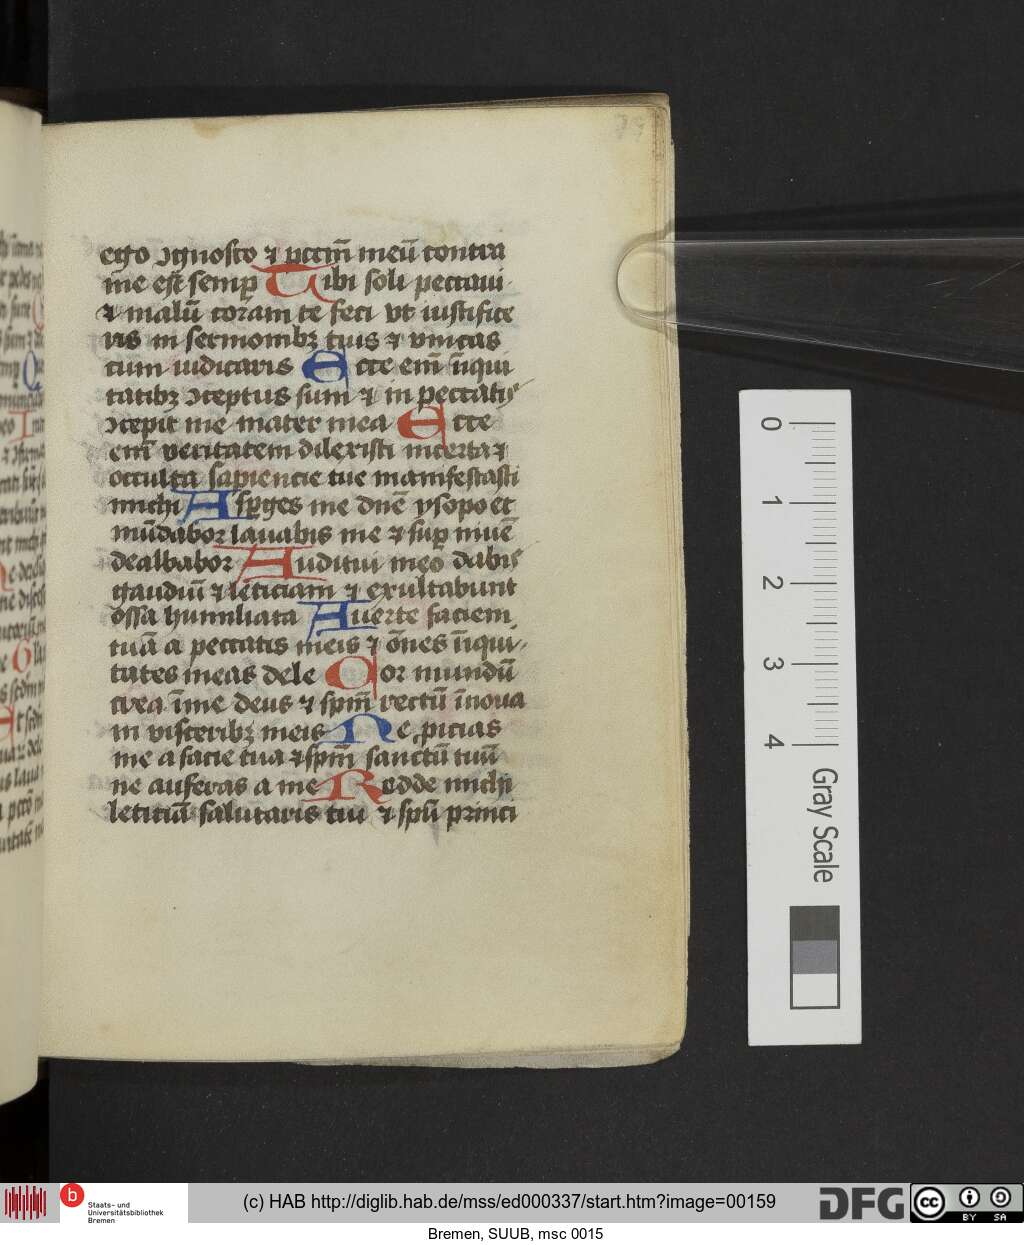 79
ego ↄgnosco ⁊ pccm̄ meū contra
me est semꝑ Tibi soli peccaui
⁊ malū coram te feci vt iustifice
ris in sermonibꝫ tuis ⁊ vincas
cum iudicaris Ecce em̄ īiqui
tatibꝫ ↄceptus sum ⁊ in peccatis
ↄcepit me mater mea Ecce
em̄ veritatem dilexisti incerta ⁊
occulta sapiencie tue manifestasti
michi Asꝑges me dn̄e ysopo et
mūdabor lauabis me ⁊ suꝑ niuē
dealbabor Auditui meo dabis
gaudiū ⁊ leticiam ⁊ exultabunt
ossa humiliata Auerte faciem
tuā a peccatis meis ⁊ ōnes īiqui
tates meas dele Cor mundū
crea ī me deus ⁊ spm̄ rectū īnoua
in visceribꝫ meis Ne ꝓicias
me a facie tua ⁊ spm̄ sanctū tuū
ne auferas a me Redde michi
leticiā salutaris tui ⁊ spū princi
0
1
2
3
4
Gray Scale
b
Staats- und
Universitätsbibliothek
Bremen
(c) HAB http://diglib.hab.de/mss/ed000337/start.htm?image=00159
DFG
cc
BY SA
Bremen, SUUB, msc 0015